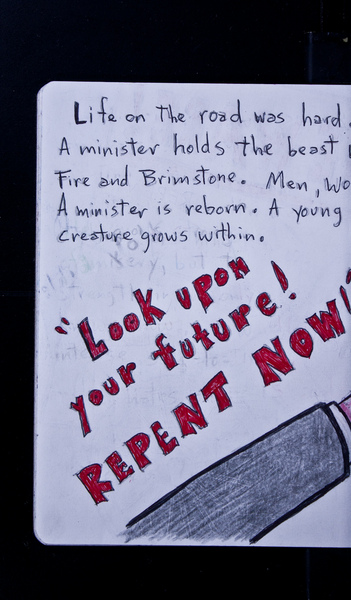 Life on the road was hard.
A minister holds the beast
Fire and Brimstone. Men, Wo
A minister is reborn. A young
creature grows within.
"Look upon
your future!
REPENT NOW!"